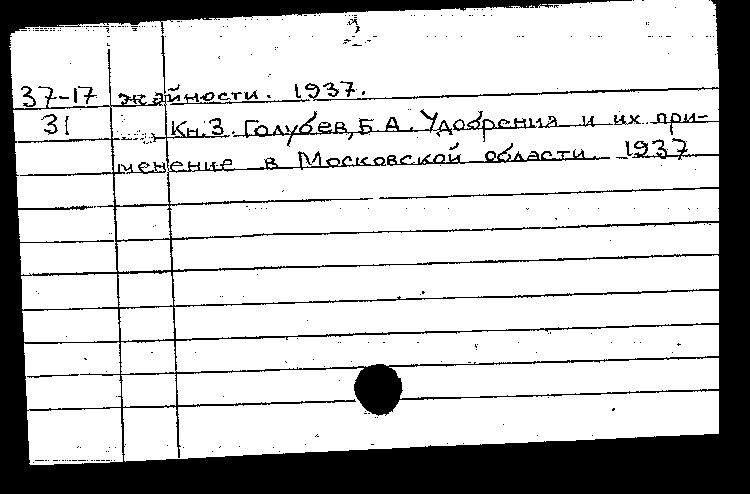 2
37-17 жайности. 1937.
31 Кн.3. Голубев, Б.А. Удобрения и их при-
менение в Московской области. 1937